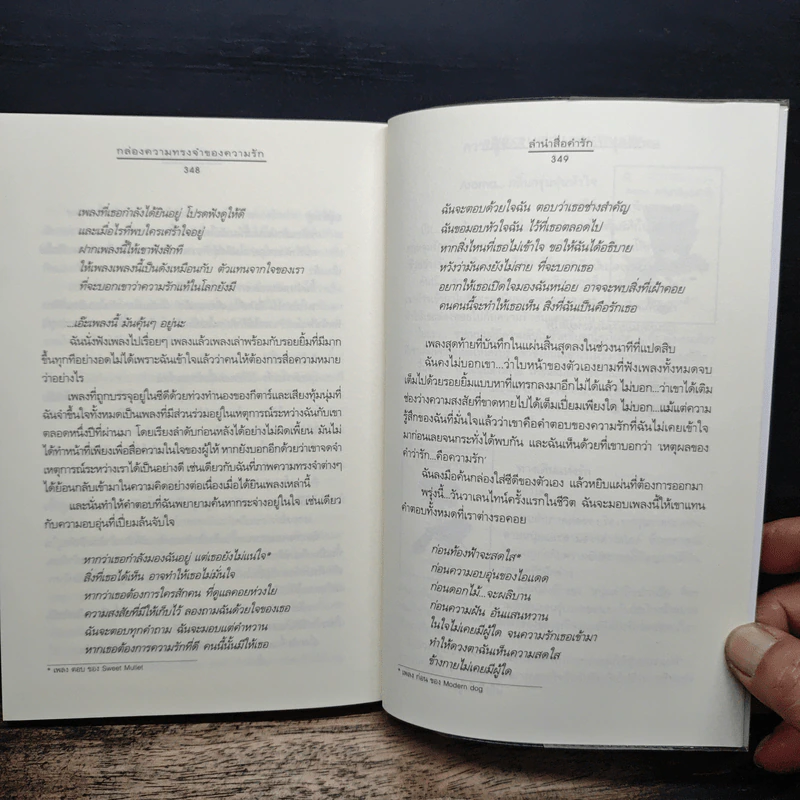 กล่องความทรงจำของความรัก
348
เพลงที่เธอกำลังได้ยินอยู่ โปรดฟังดูให้ดี
และเมื่อไรที่พบใครเศร้าใจอยู่
ฝากเพลงนี้ให้เขาฟังสักที
ให้เพลงเพลงนี้เป็นดังเหมือนกับ ตัวแทนจากใจของเรา
ที่จะบอกเขาว่าความรักแท้ในโลกยังมี
...เอ๊ะเพลงนี้ มันคุ้นๆ อยู่นะ
ฉันนั่งฟังเพลงไปเรื่อยๆ เพลงแล้วเพลงเล่าพร้อมกับรอยยิ้มที่มีมาก
ขึ้นทุกทีอย่างอดไม่ได้เพราะฉันเข้าใจแล้วว่าคนให้ต้องการสื่อความหมาย
ว่าอย่างไร
เพลงที่ถูกบรรจุอยู่ในซีดีด้วยท่วงทำนองของกีตาร์และเสียงทุ้มนุ่มที่
ฉันจำขึ้นใจทั้งหมดเป็นเพลงที่มีส่วนร่วมอยู่ในเหตุการณ์ระหว่างฉันกับเขา
ตลอดหนึ่งปีที่ผ่านมา โดยเรียงลำดับก่อนหลังได้อย่างไม่ผิดเพี้ยน มันไม่
ได้ทำหน้าที่เพียงเพื่อสื่อความในใจของผู้ให้ หากยังบอกอีกด้วยว่าเขาจดจำ
เหตุการณ์ระหว่างเราได้เป็นอย่างดี เช่นเดียวกับฉันที่ภาพความทรงจำต่างๆ
ได้ย้อนกลับเข้ามาในความคิดอย่างต่อเนื่องเมื่อได้ยินเพลงเหล่านี้
และนั่นทำให้คำตอบที่ฉันพยายามค้นหากระจ่างอยู่ในใจ เช่นเดียว
กับความอบอุ่นที่เปี่ยมล้นจับใจ
หากว่าเธอกำลังมองฉันอยู่ แต่เธอยังไม่แน่ใจ*
สิ่งที่เธอได้เห็น อาจทำให้เธอไม่มั่นใจ
หากว่าเธอต้องการใครสักคน ที่ดูแลคอยห่วงใย
ความสงสัยที่มีให้เก็บไว้ ลองถามฉันด้วยใจของเธอ
ฉันจะตอบทุกคำถาม ฉันจะมอบแต่คำหวาน
หากเธอต้องการความรักที่ดี คนนี้นั้นมีให้เธอ
* เพลง ตอบ ของ Sweet Mullet
ลำนำสื่อคำรัก
349
ฉันจะตอบด้วยใจฉัน ตอบว่าเธอช่างสำคัญ
ฉันขอมอบหัวใจฉัน ไว้ที่เธอตลอดไป
หากสิ่งไหนที่เธอไม่เข้าใจ ขอให้ฉันได้อธิบาย
หวังว่ามันคงยังไม่สาย ที่จะบอกเธอ
อยากให้เธอเปิดใจมองฉันหน่อย อาจจะพบสิ่งที่เฝ้าคอย
คนคนนี้จะทำให้เธอเห็น สิ่งที่ฉันเป็นคือรักเธอ
เพลงสุดท้ายที่บันทึกในแผ่นสิ้นสุดลงในช่วงนาทีที่แปดสิบ
ฉันคงไม่บอกเขา...ว่าใบหน้าของตัวเองยามที่ฟังเพลงทั้งหมดจบ
เต็มไปด้วยรอยยิ้มแบบหาที่แทรกลงมาอีกไม่ได้แล้ว ไม่บอก...ว่าเขาได้เติม
ช่องว่างความสงสัยที่ขาดหายไปได้เต็มเปี่ยมเพียงใด ไม่บอก...แม้แต่ความ
รู้สึกของฉันที่มั่นใจแล้วว่าเขาคือคำตอบของความรักที่ฉันไม่เคยเข้าใจ
มาก่อนเลยจนกระทั่งได้พบกัน และฉันเห็นด้วยที่เขาบอกว่า 'เหตุผลของ
คำว่ารัก...คือความรัก'
ฉันลงมือค้นกล่องใส่ซีดีของตัวเอง แล้วหยิบแผ่นที่ต้องการออกมา
พรุ่งนี้...วันวาเลนไทน์ครั้งแรกในชีวิต ฉันจะมอบเพลงนี้ให้เขาแทน
คำตอบทั้งหมดที่เราต่างรอคอย
ก่อนท้องฟ้าจะสดใส*
ก่อนความอบอุ่นของไอแดด
ก่อนดอกไม้...จะผลิบาน
ก่อนความฝัน อันแสนหวาน
ในใจไม่เคยมีผู้ใด จนความรักเธอเข้ามา
ทำให้ดวงตาฉันเห็นความสดใส
ข้างกายไม่เคยมีผู้ใด
* เพลง ก่อน ของ Modern dog